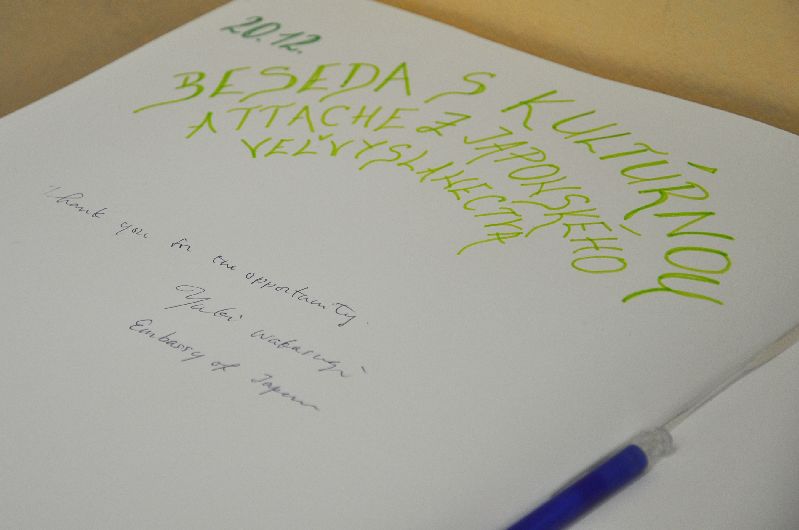 20.12.
BESEDA S KULTÚRNOU
ATTACHE Z JAPONSKÉHO
VEĽVYSLANECTVA
Thank you for the opportunity.
Yuki Wakasugi
Embassy of Japan